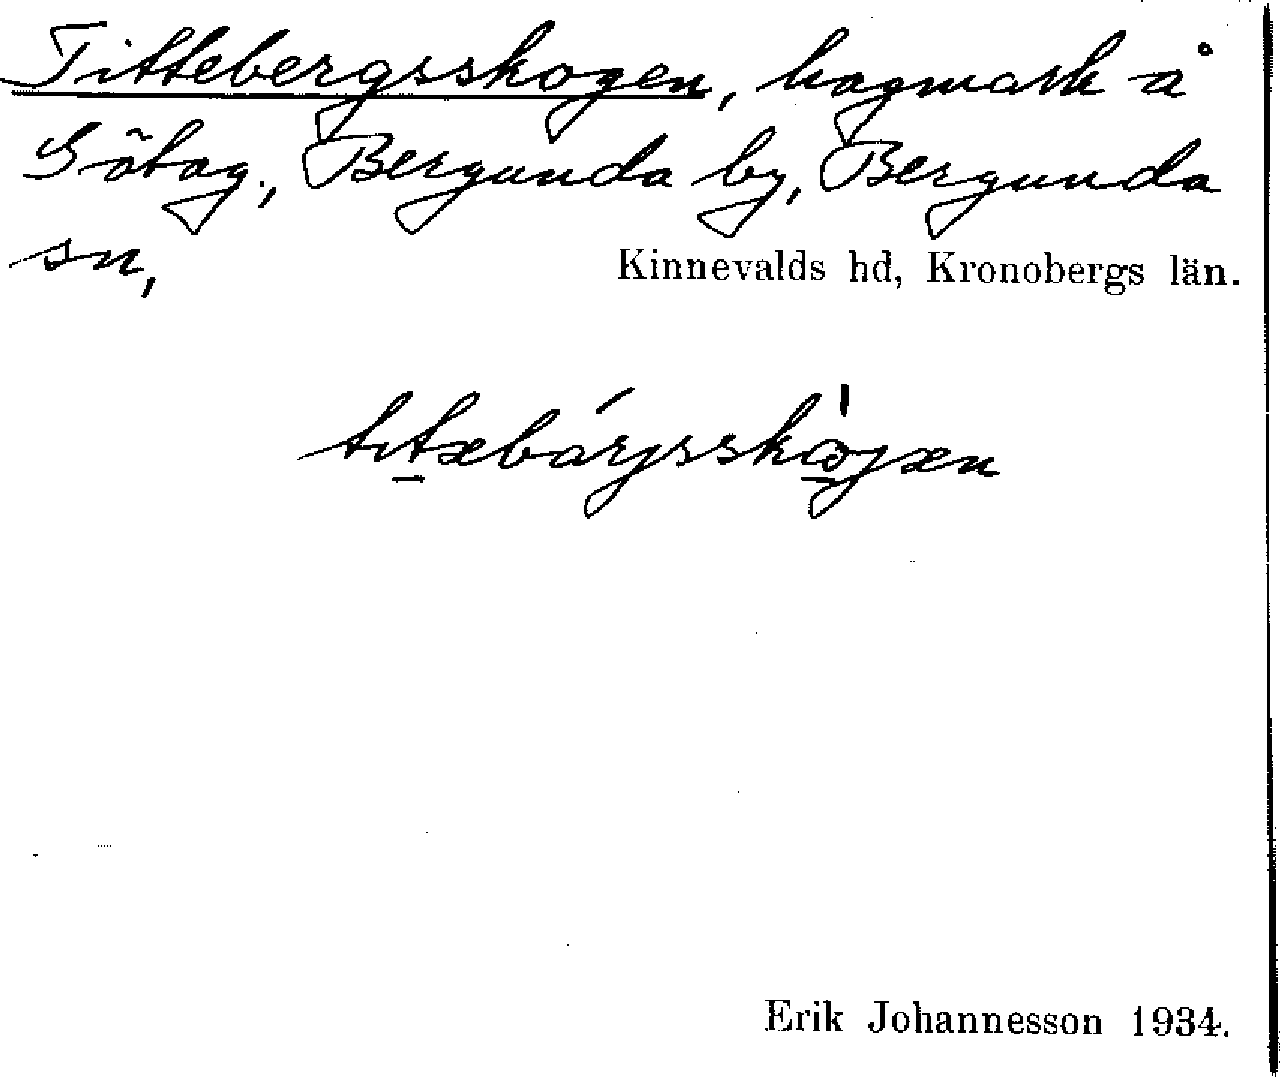 Tittebergsskogen, hagmark å
Götag., Bergunda by, Bergunda
sn,
Kinnevalds hd, Kronobergs län.
Erik Johannesson 1934.